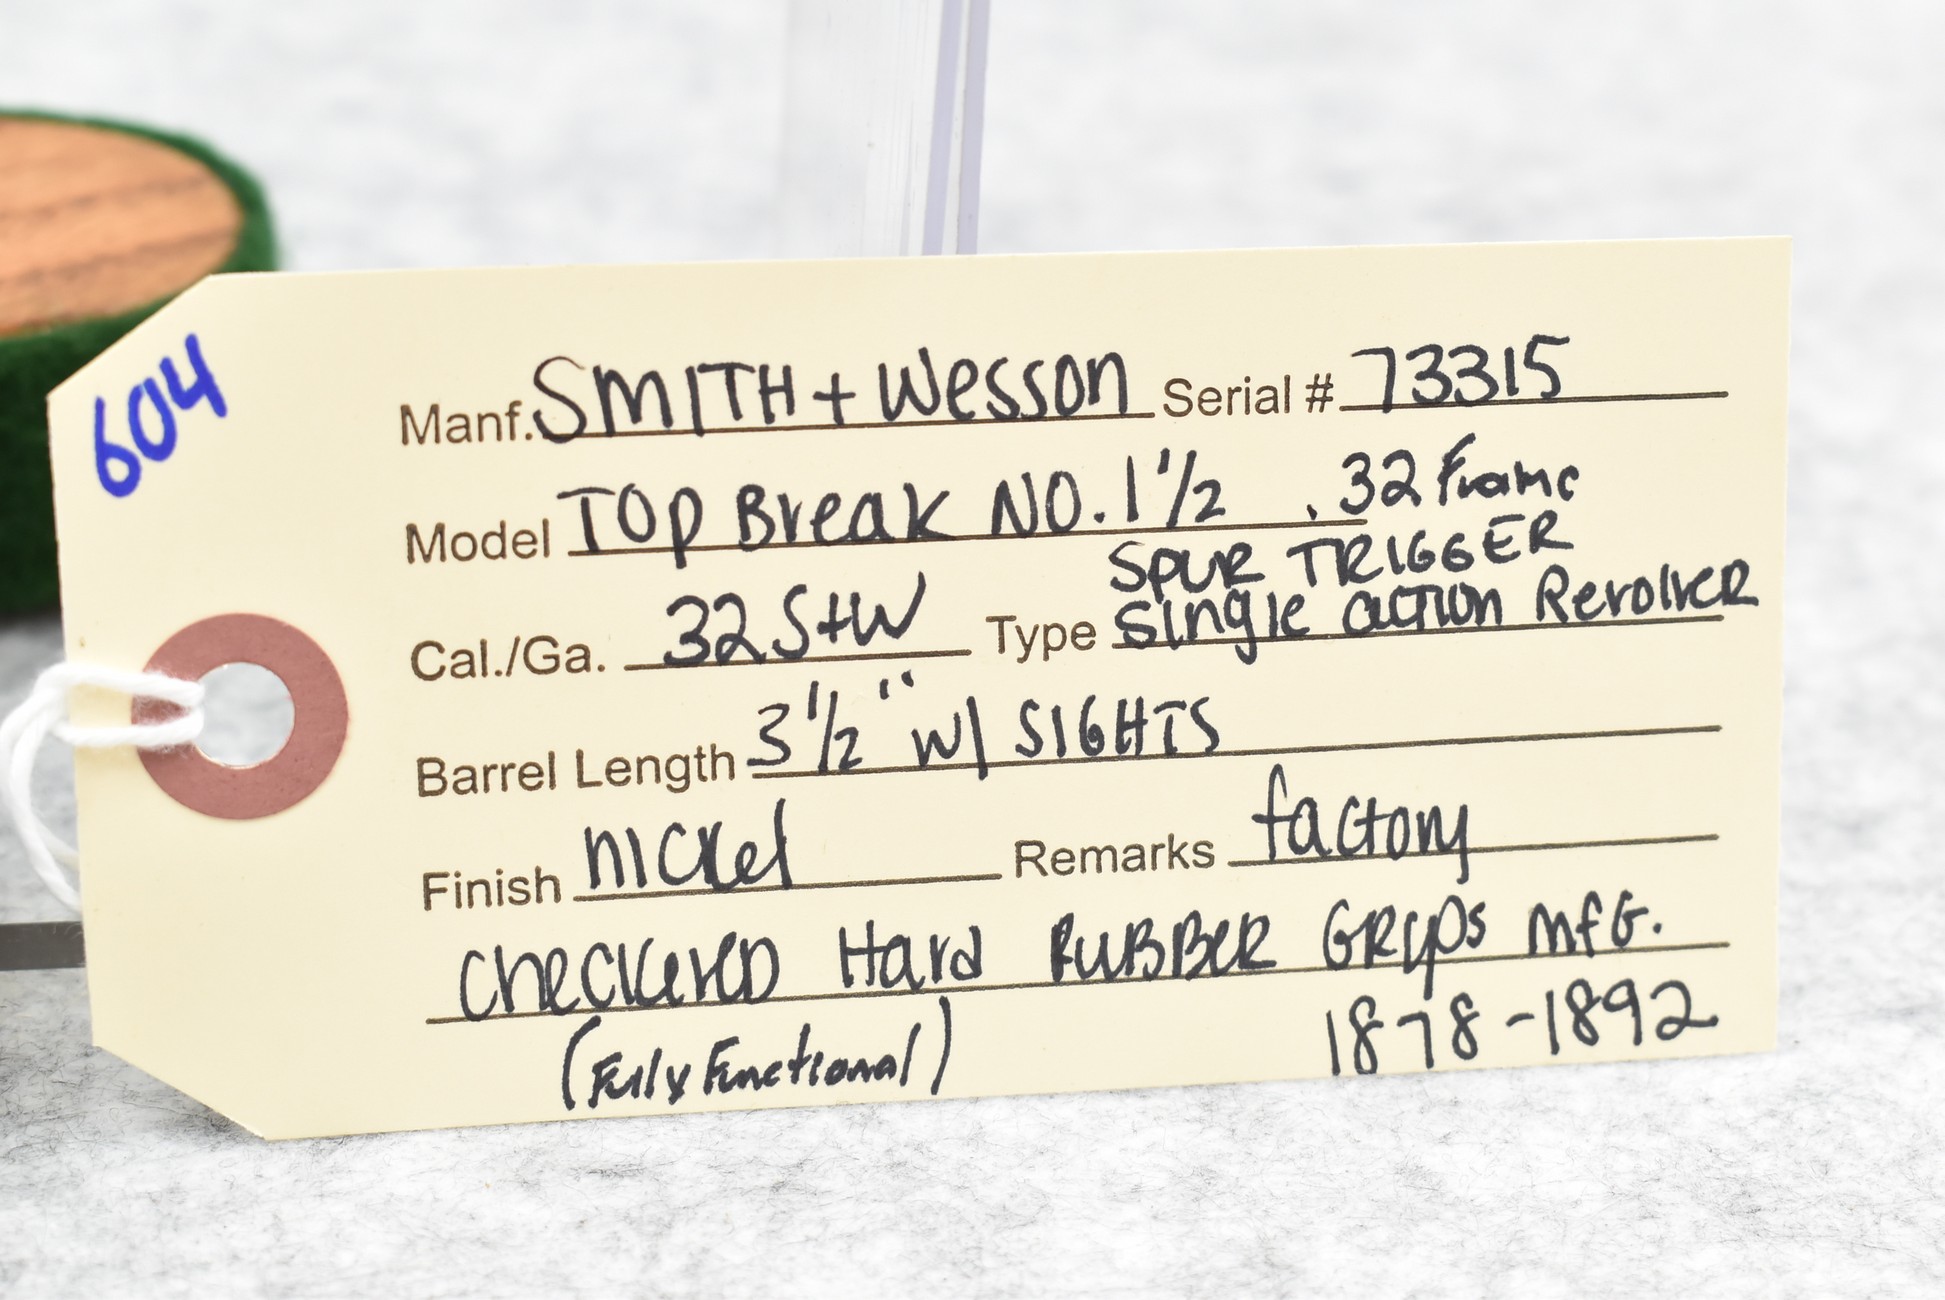 604
Manf. SMITH + Wesson Serial # 73315
Model TOP Break NO. 1 1/2 .32 Frame
SPUR TRIGGER
Cal./Ga. 32 S+W Type Single action Revolver
Barrel Length 3 1/2" W/ SIGHTS
Finish nickel Remarks factory
Checkered Hard RUBBER GRIPS MFG.
(Fully Functional) 1878-1892